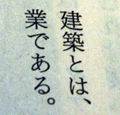 建築とは、
業である。